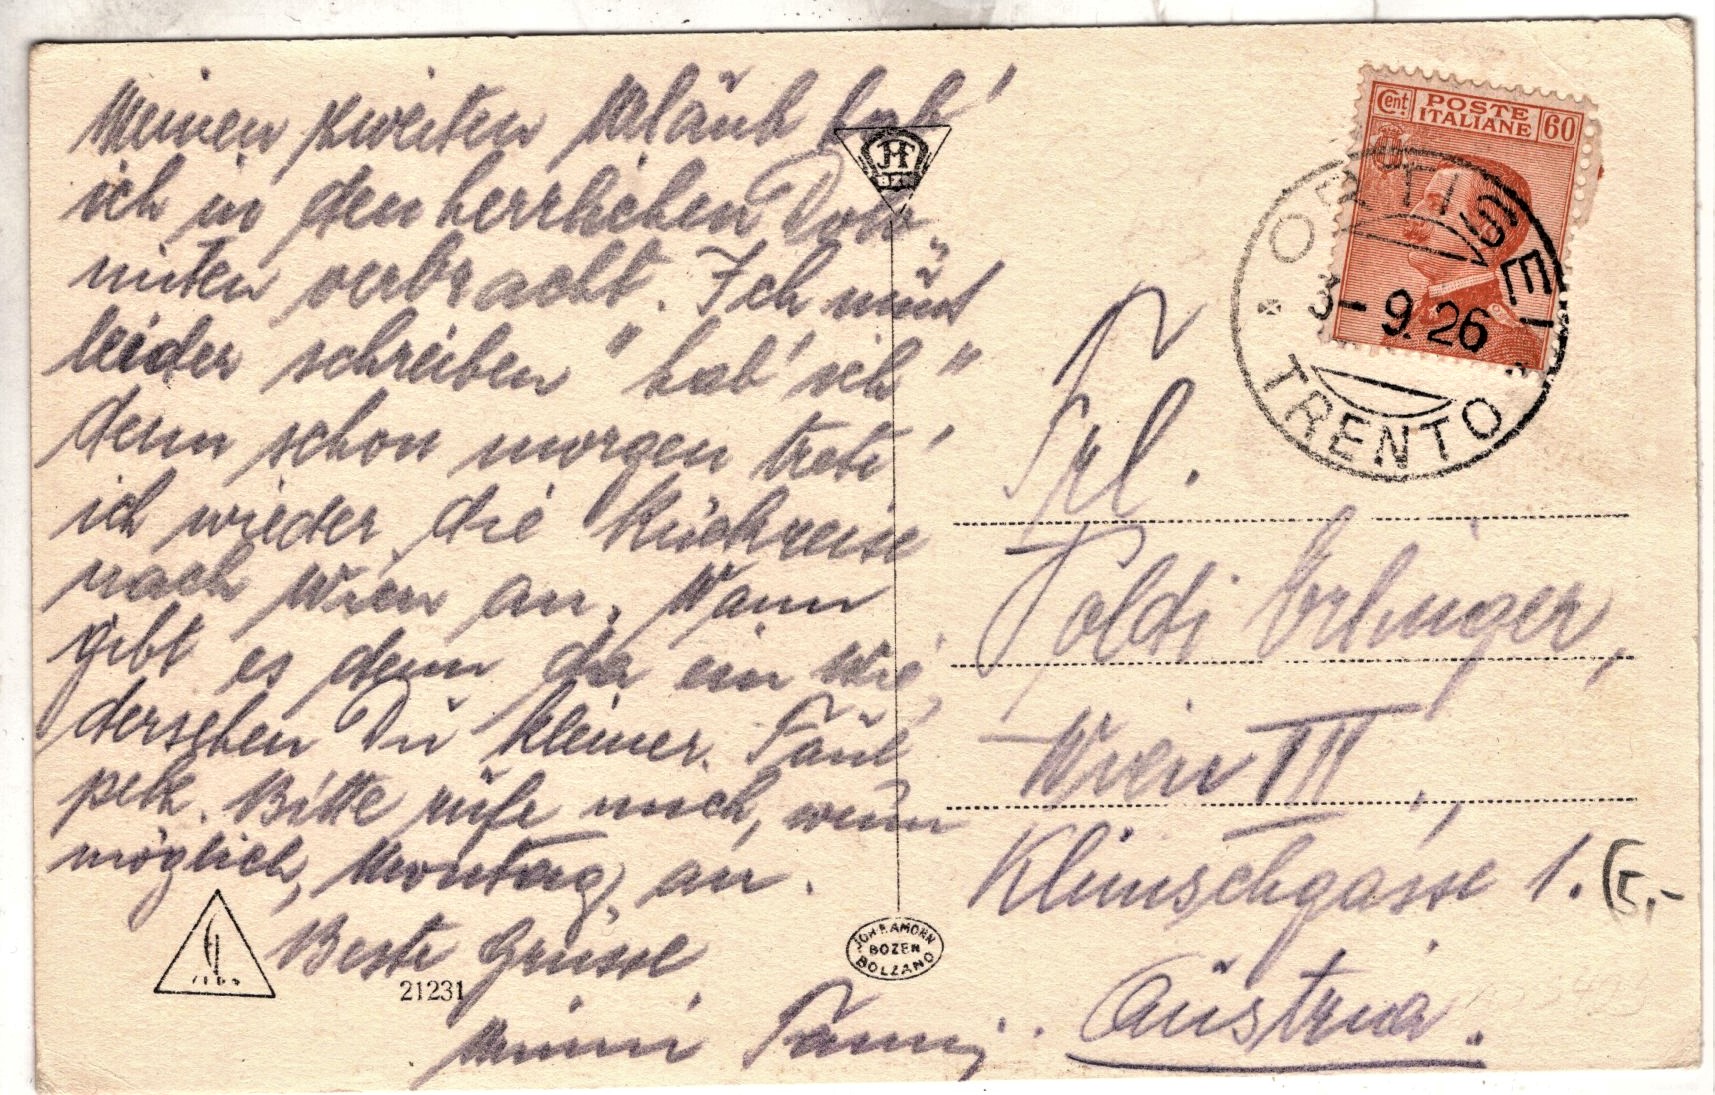 Meinen zweiten Urlaub hab'
ich in den herrlichen Dolo„
miten verbracht. Ich muß
leider schreiben "hab' ich"
denn schon morgen trete'
ich wieder die Rückreise
nach Wien an. Wann
gibt es denn da ein Wie„
dersehen Du kleiner Faul
pelz. Bitte rufe mich, wenn
möglich, Montag, an.
Beste Grüsse
21231
Cent POSTE ITALIANE 60
ORTISEI
3-9.26
TRENTO
Frl.
Poldi Erlinger,
Wien III,
Klimschgasse 1.
Austria.
5,-
JOH. F. AMORN
BOZEN
BOLZANO